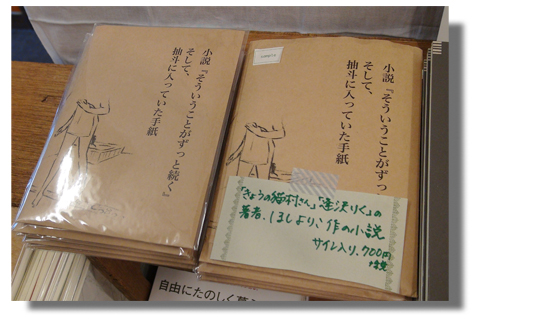 小説『そういうことがずっと続く』
そして、
抽斗に入っていた手紙
小説『そういうことがずっ
そして、
抽斗に入っていた手紙
「きょうの猫村さん」「逢沢りく」の
著者、ほしよりこ作の小説
サイン入り、700円
+税
自由にたのしく